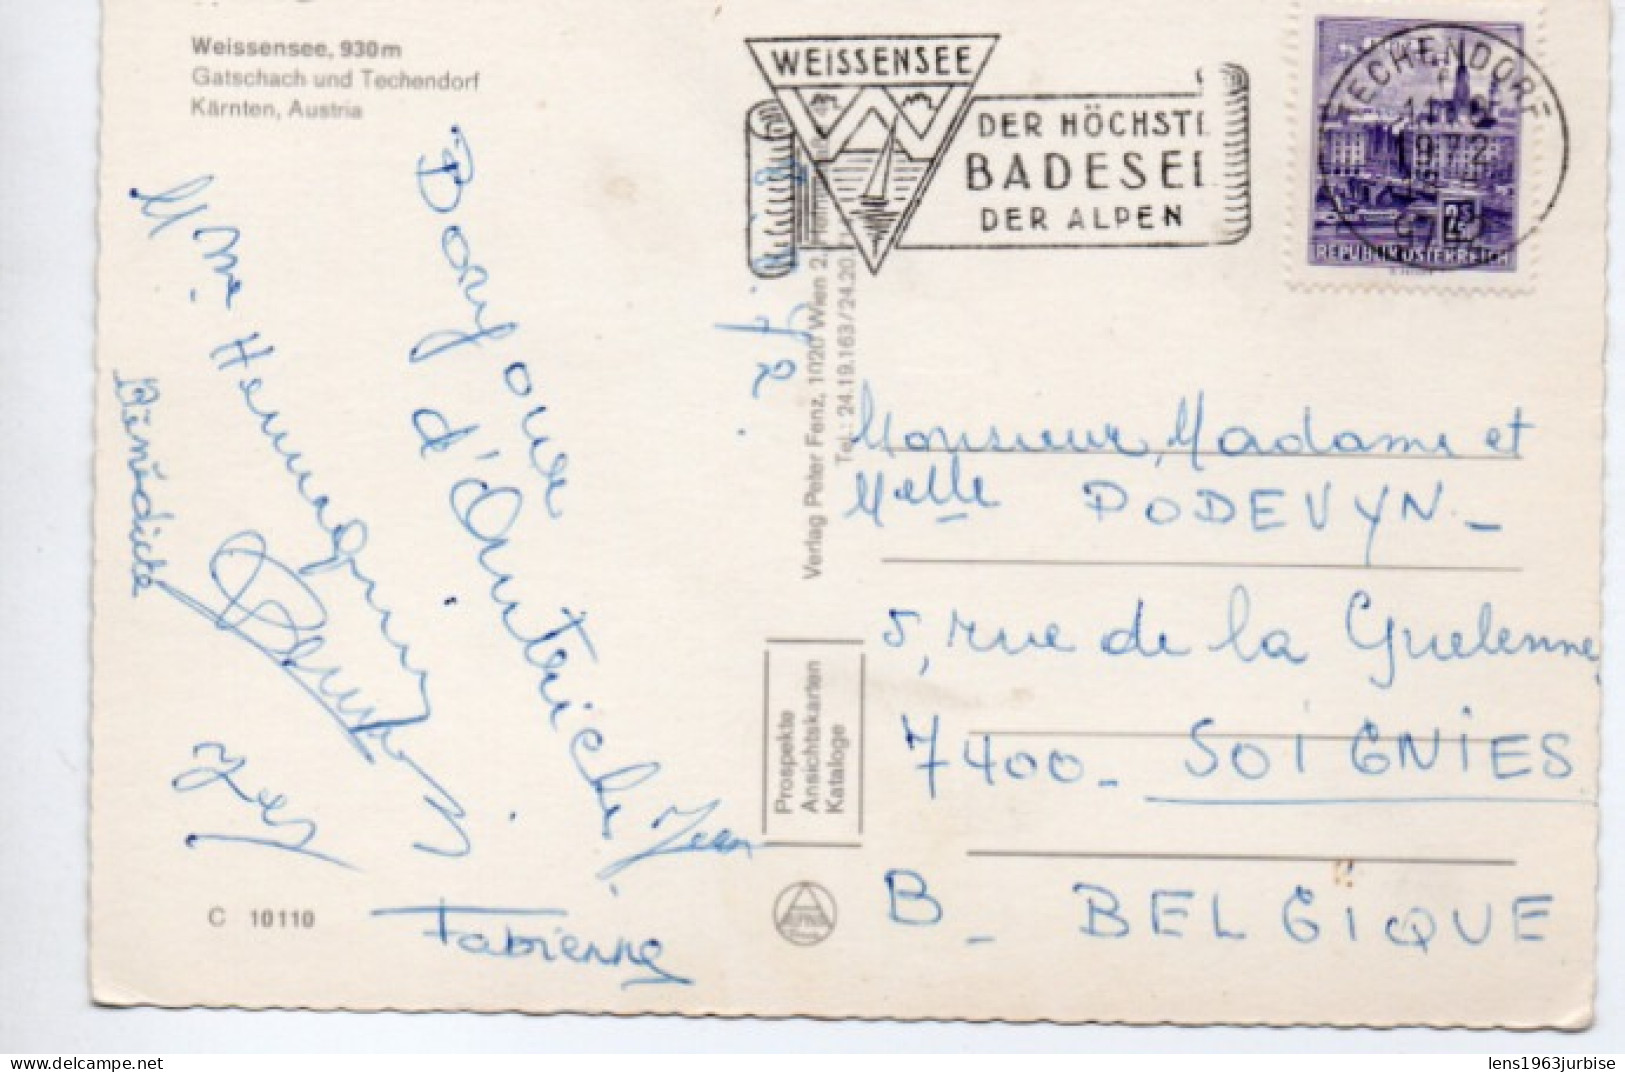 Weissensee, 930m
Gatschach und Techendorf
Kärnten, Austria
WEISSENSEE
DER HÖCHSTE
BADESEE
DER ALPEN
TECHENDORF
1972
REPUBLIK ÖSTERREICH
Bonjour
d'Autriche
Jean
Mme Hennequin
Bénédicte
Yves
Fabienne
72
C 10110
Verlag Peter Fenz, 1020 Wien 2,
Tel.: 24.19.163/24.20.
Prospekte
Ansichtskarten
Kataloge
Monsieur, Madame et
Melle PODEVYN -
5, rue de la Guelenne,
7400 - SOIGNIES
B - BELGIQUE
lens1963jurbise